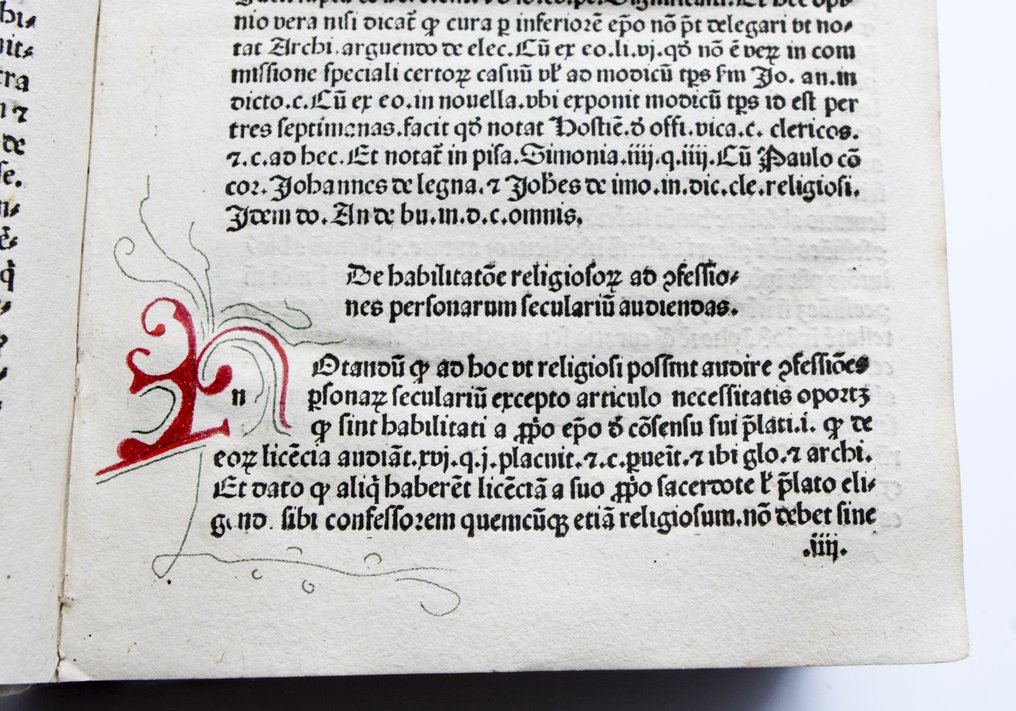 nio vera nisi dicat̄ ꝙ cura ꝑ inferiorē ep̄o nō p̄t delegari vt no⸗
tat Archi.arguendo de elec.Cū ex eo.li.vj.qd̄ nō ē veꝝ in com
missione speciali certoꝝ casuū vl̓ ad modicū tp̄s s̄m Jo. an.in
dicto.c.Cū ex eo.in nouella.vbi exponit modicū tp̄s id est per
tres septimanas.facit qd̄ notat Hostiē.d̄ offi.vica.c. clericos.
⁊.c.ad hec.Et notat̄ in pisa.Simonia.iiij.q.iiij.Cū Paulo cō
cor.Johannes de legna.⁊ Joh̄es de imo.in.dic.cle.religiosi.
Jdem do.An de bu.in.d.c.omnis.
De habilitatōe religiosoꝝ ad ꝯfessio⸗
nes personarum seculariū audiendas.
Otandū ꝙ ad hoc vt religiosi possint audire ꝯfessiōes
n ꝑsonaꝝ seculariū excepto articulo necessitatis oportꝫ
ꝙ sint habilitati a ꝓpo ep̄o d̄ cōsensu sui p̄lati.i. ꝙ de
eoꝝ licēcia audiāt.xvj.q.j.placuit.⁊.c.ꝑueīt.⁊ ibi glo.⁊ archi.
Et dato ꝙ aliq̄ haberēt licēciā a suo ꝓpo sacerdote l̓ p̄lato eli⸗
gend. sibi confessorem quemcūqꝫ etiā religiosum.nō debet sine
.iiij.